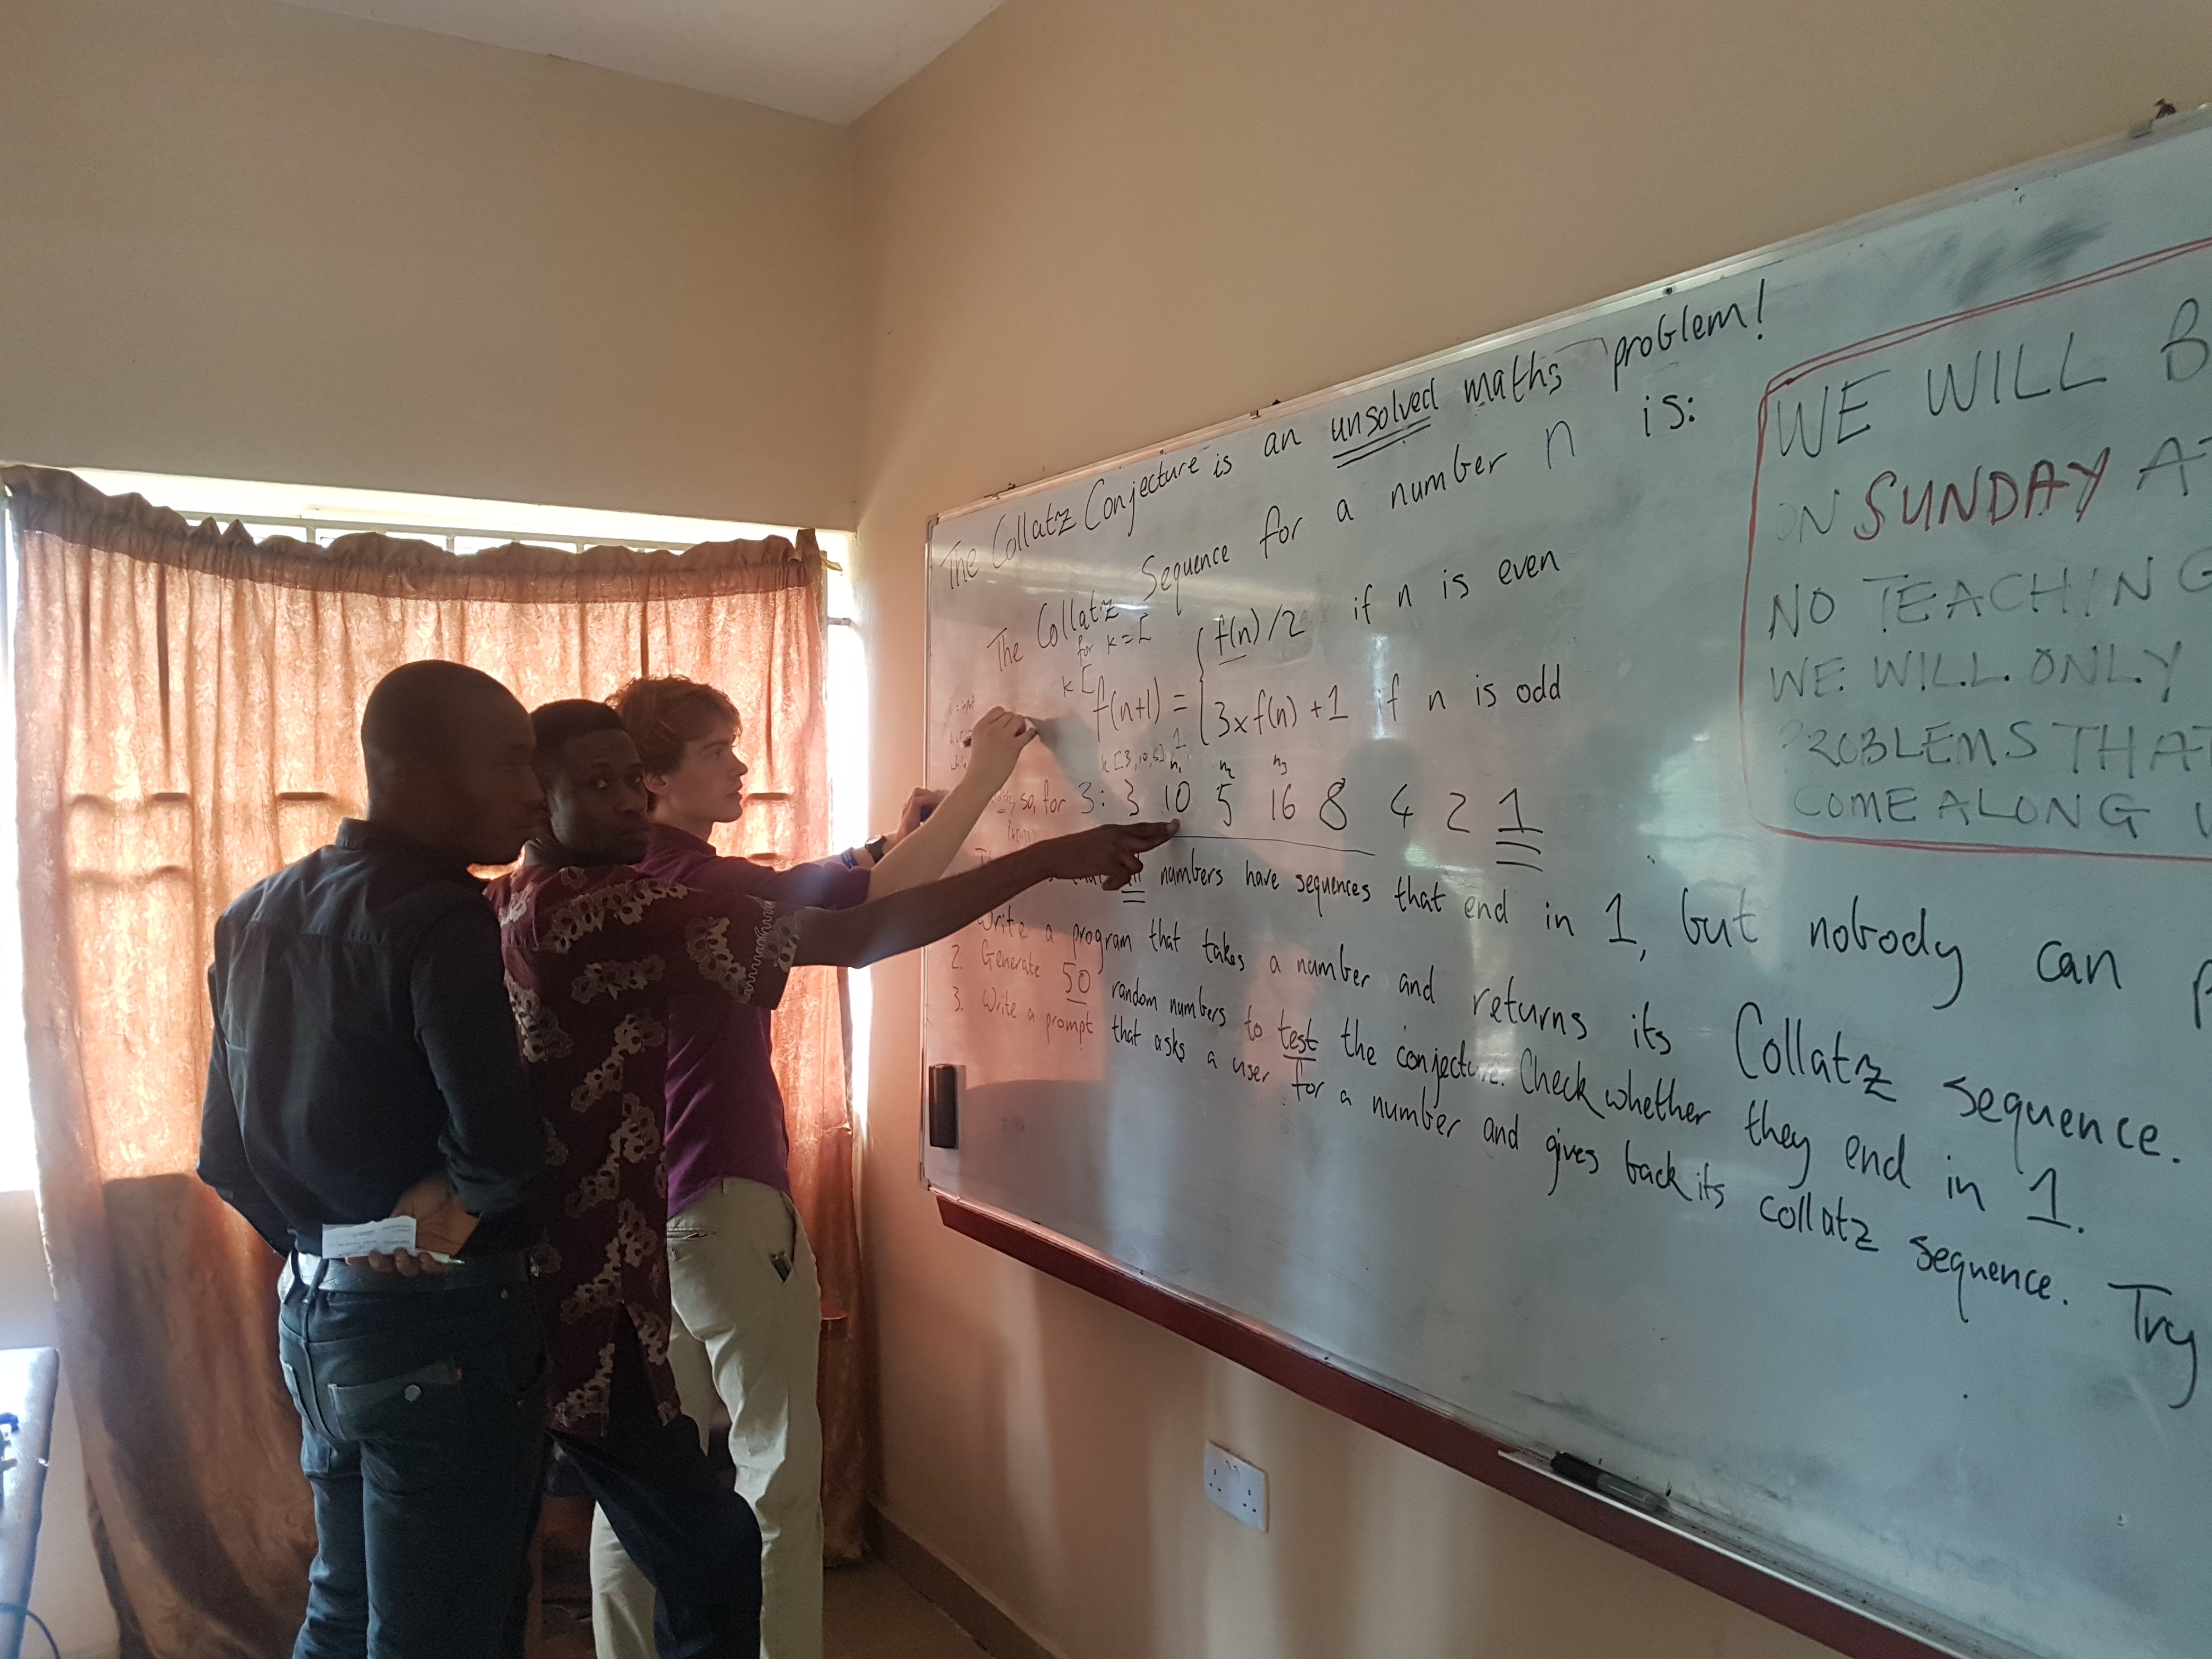 The Collatz Conjecture is an unsolved maths problem!
The Collatz Sequence for a number n is:
for k = [
k [
f(n)/2 if n is even
f(n+1) =
3xf(n) +1 if n is odd
k [3, 10, 5] 1
n1 n2 n3
so, for 3: 3 10 5 16 8 4 2 1
that all numbers have sequences that end in 1, but nobody can
Write a program that takes a number and returns its Collatz sequence.
2. Generate 50 random numbers to test the conjecture. Check whether they end in 1.
3. Write a prompt that asks a user for a number and gives back its collatz sequence. Try
WE WILL B
ON SUNDAY AT
NO TEACHING
WE WILL ONLY
PROBLEMS THAT
COME ALONG